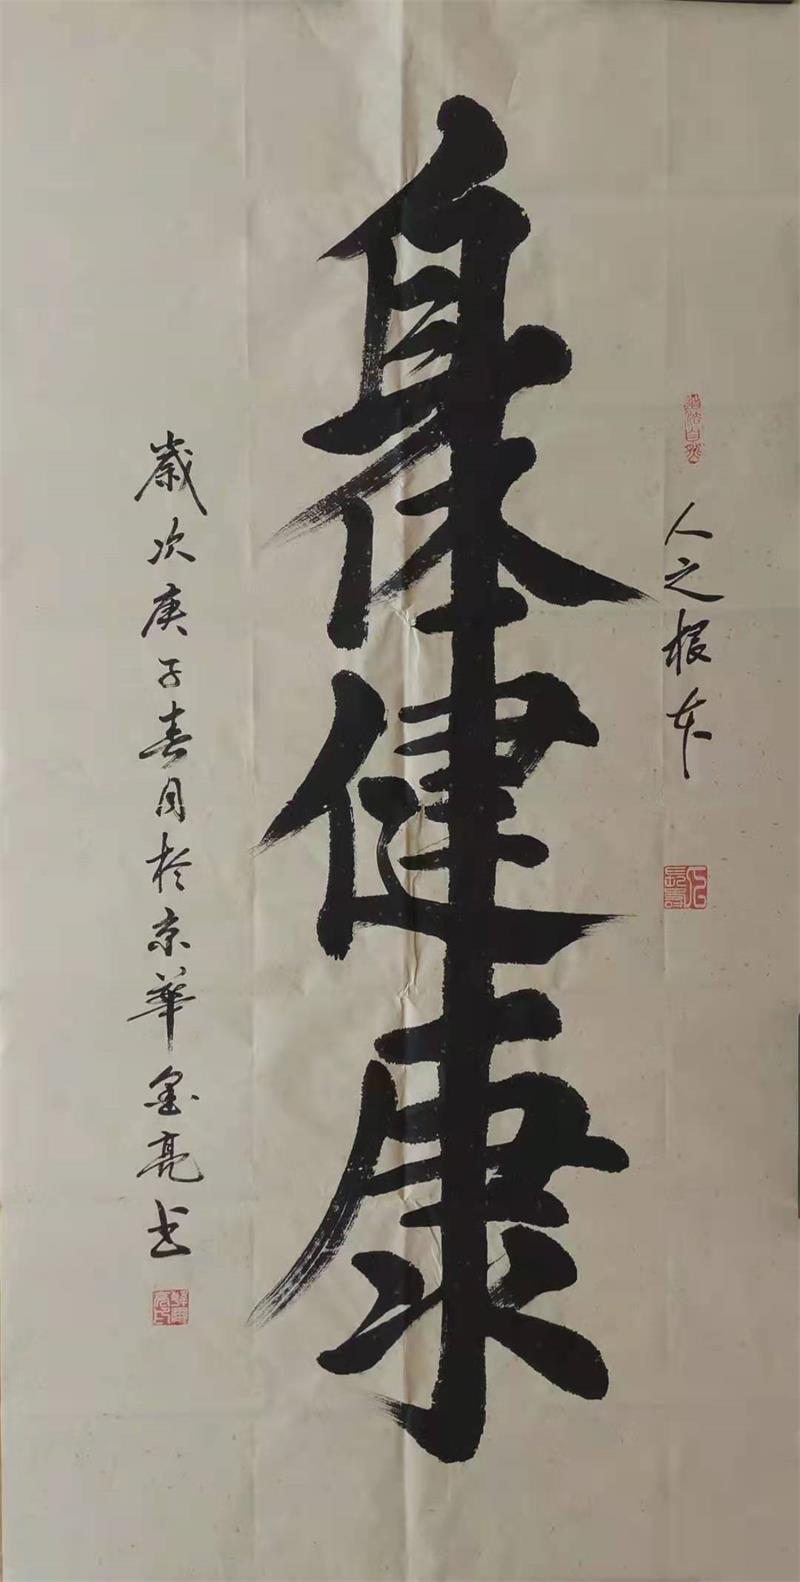 道法自然
人之根本
身体健康
歲次庚子春月於京華亮书